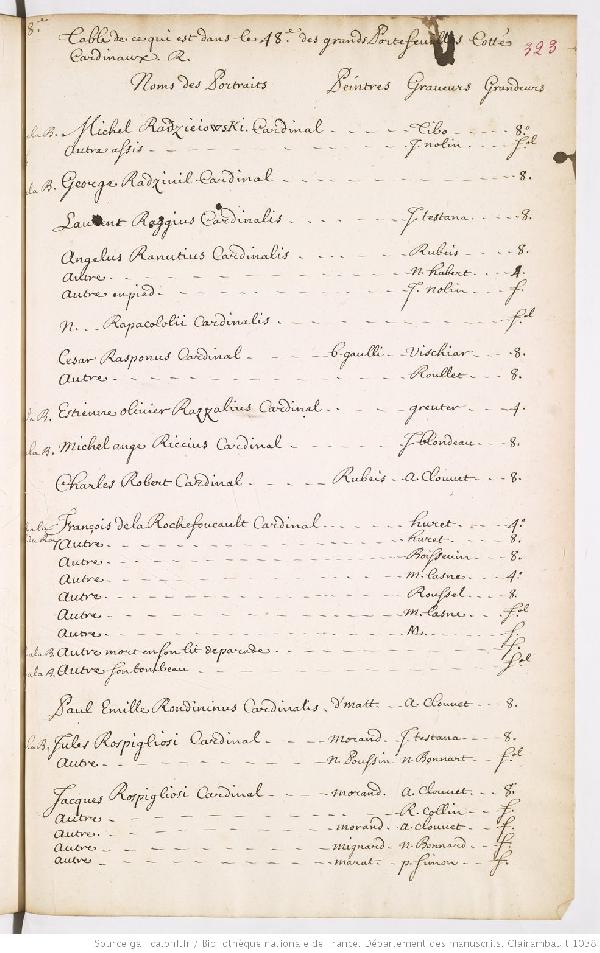 8.e
Table de ce qui est dans le 48.e des grands Portefeuilles Cotté
Cardinaux R.
323
Noms des Portraits Peintres Graveurs Grandeurs
ala B. Michel Radzieiowski Cardinal - - - - Tibo - - - 8.o
Autre assis - - - - J. nolin - - f.ol
ala B. George Radzivil Cardinal - - - - 8.
Laurent Raggius Cardinalis - - - - J. testana - - 8.
Angelus Ranutius Cardinalis - - - - Rubeis - - 8.
Autre - - - - n. habert - - 4.
Autre en pied - - - - J. nolin - - f.
N. . . Rapacololii Cardinalis - - - - f.ol
Cesar Rasponus Cardinal - - - - b. gaulli - Vischiar - - 8.
Autre - - - - Roullet - - 8.
ala B. Estienne olivier Razzalius Cardinal - - - - greuter - - 4.
ala B. Michel ange Riccius Cardinal - - - - J. blondeau - - 8.
Charles Robert Cardinal - - - - Rubeis - a. Clouuet - - 8.
ala François de la Rochefoucault Cardinal - - - - huret - - 4.o
Autre - - - - huret - - 8.
Autre - - - - Boisseuin - - 8.
Autre - - - - m. lasne - - 4.o
Autre - - - - Roussel - - 8.
Autre - - - - m. lasne - - f.ol
Autre - - - - M. - - f.
ala B. Autre mort en son lit de parade - - - - f.
ala B. Autre son tombeau - - - - f.ol
Paul Emille Rondininus Cardinalis - d'matt - a. Clouuet - - 8.
ala B. Jules Rospigliosi Cardinal - - - - morand - J. testana - - 8.
Autre - - - - n. Poussin n. Bonnart - - f.ol
Jacques Rospigliosi Cardinal - - - - morand - a. Clouuet - - 8.
Autre - - - - R. Collin - - f.
Autre - - - - morand - a. Clouuet - - f.
Autre - - - - mignard - n. Bonnard - - f.
Autre - - - - marat - p. simon - - f.
Source gallica.bnf.fr / Bibliothèque nationale de France. Département des manuscrits. Clairambault 1038